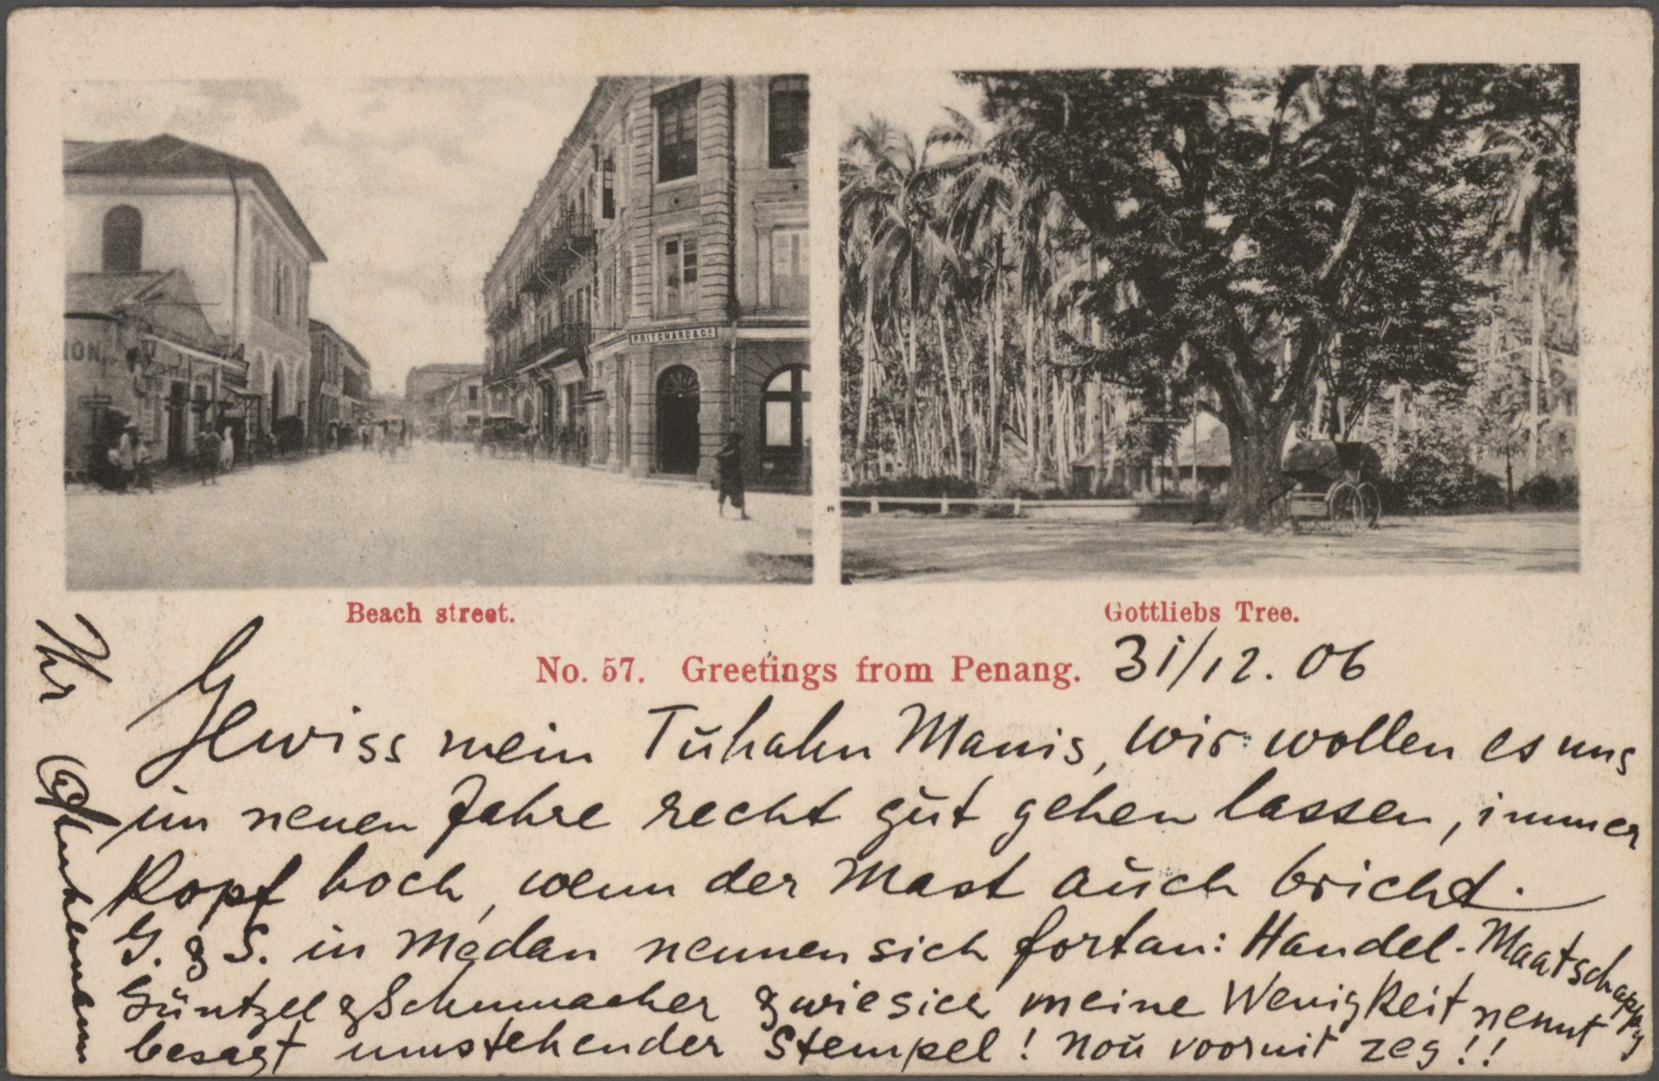 ION.
PRITCHARD & Co
Beach street.
Gottliebs Tree.
No. 57. Greetings from Penang.
31/12. 06
Gewiss mein Tuhahn Manis, wir wollen es uns
im neuen Jahre recht gut gehen lassen, immer
Kopf hoch, wenn der Mast auch bricht.
G. & S. in Medan nennen sich fortan: Handel-Maatschappy
Güntzel & Schumacher & wie sich meine Wenigkeit nennt
besagt umstehender Stempel! Nou vooruit zeg!!
Ihr